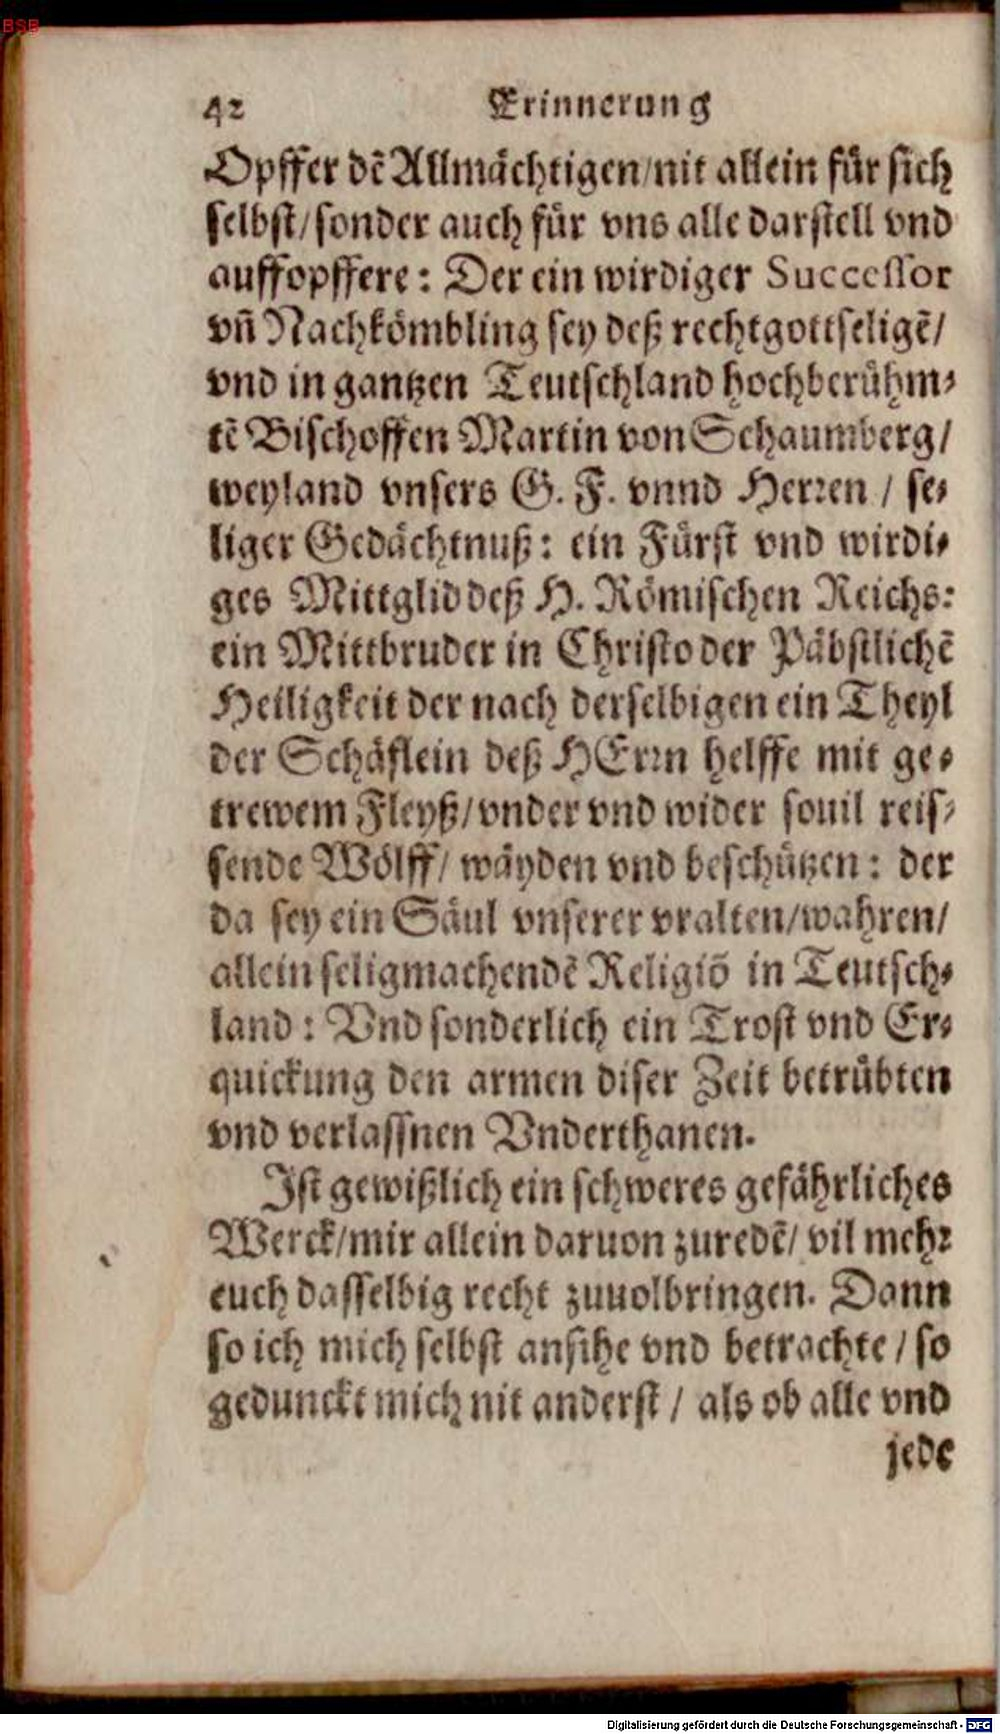 BSB
42 Erinnerung
Opffer dẽ Allmächtigen/nit allein für sich
selbst/sonder auch für vns alle darstell vnd
auffopffere: Der ein wirdiger Successor
vñ Nachkömbling sey deß rechtgottseligẽ/
vnd in gantzen Teutschland hochberühm-
tẽ Bischoffen Martin von Schaumberg/
weyland vnsers G. F. vnnd Herꝛen / se-
liger Gedächtnuß: ein Fürst vnd wirdi-
ges Mittglid deß H. Römischen Reichs:
ein Mittbruder in Christo der Päbstlichẽ
Heiligkeit der nach derselbigen ein Theyl
der Schäflein deß HErꝛn helffe mit ge-
trewem Fleyß/vnder vnd wider souil reis-
sende Wölff/ wäyden vnd beschützen: der
da sey ein Säul vnserer vralten/wahren/
allein seligmachendẽ Religiõ in Teutsch-
land: Vnd sonderlich ein Trost vnd Er-
quickung den armen diser Zeit betrübten
vnd verlassnen Vnderthanen.
Ist gewißlich ein schweres gefährliches
Werck/mir allein daruon zuredẽ/ vil mehꝛ
euch dasselbig recht zuuolbringen. Dann
so ich mich selbst ansihe vnd betrachte / so
gedunckt mich nit anderst / als ob alle vnd
jede
Digitalisierung gefördert durch die Deutsche Forschungsgemeinschaft - DFG